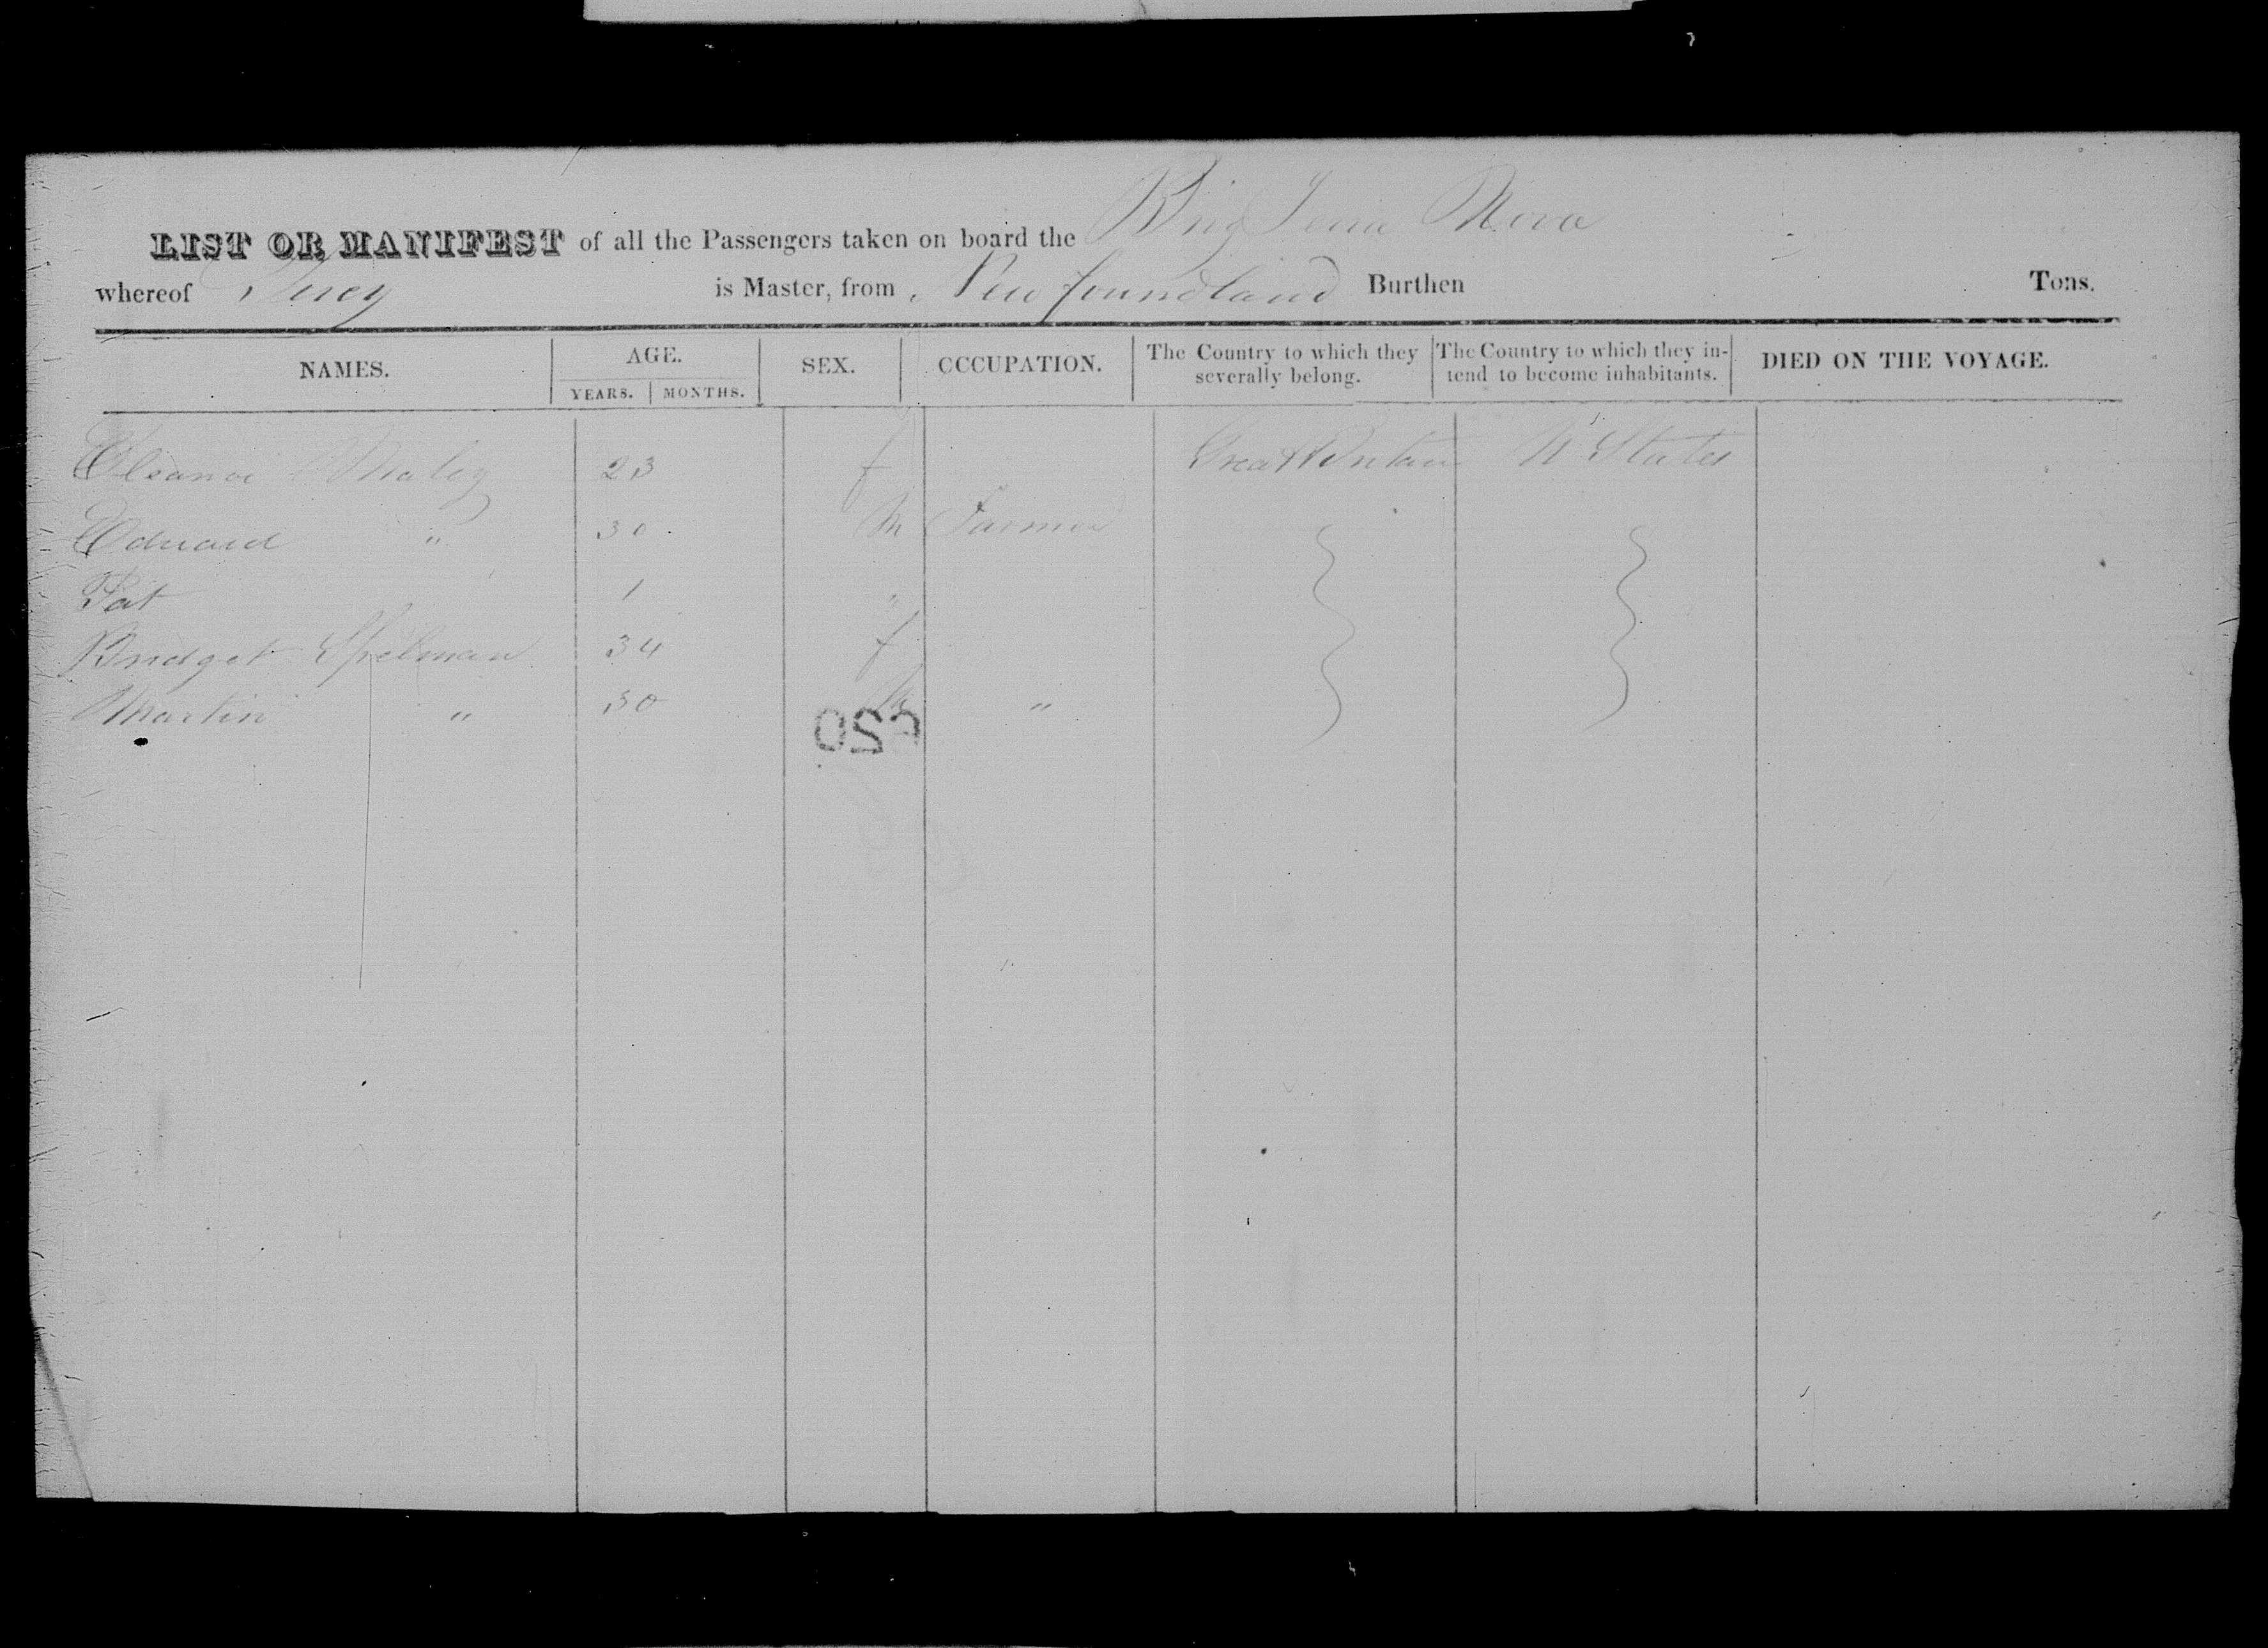 LIST OR MANIFEST of all the Passengers taken on board the Brig Terra Nova
whereof Percy is Master, from Newfoundland Burthen Tons.
NAMES. AGE. SEX. OCCUPATION. The Country to which they severally belong. The Country to which they in- tend to become inhabitants. DIED ON THE VOYAGE.
YEARS. MONTHS.
Eleanor Maley 23 f Great Britain U States
Edward " 30 M Farmer
Pat 1 "
Bridget Spelman 34 f
Martin " 30 M "